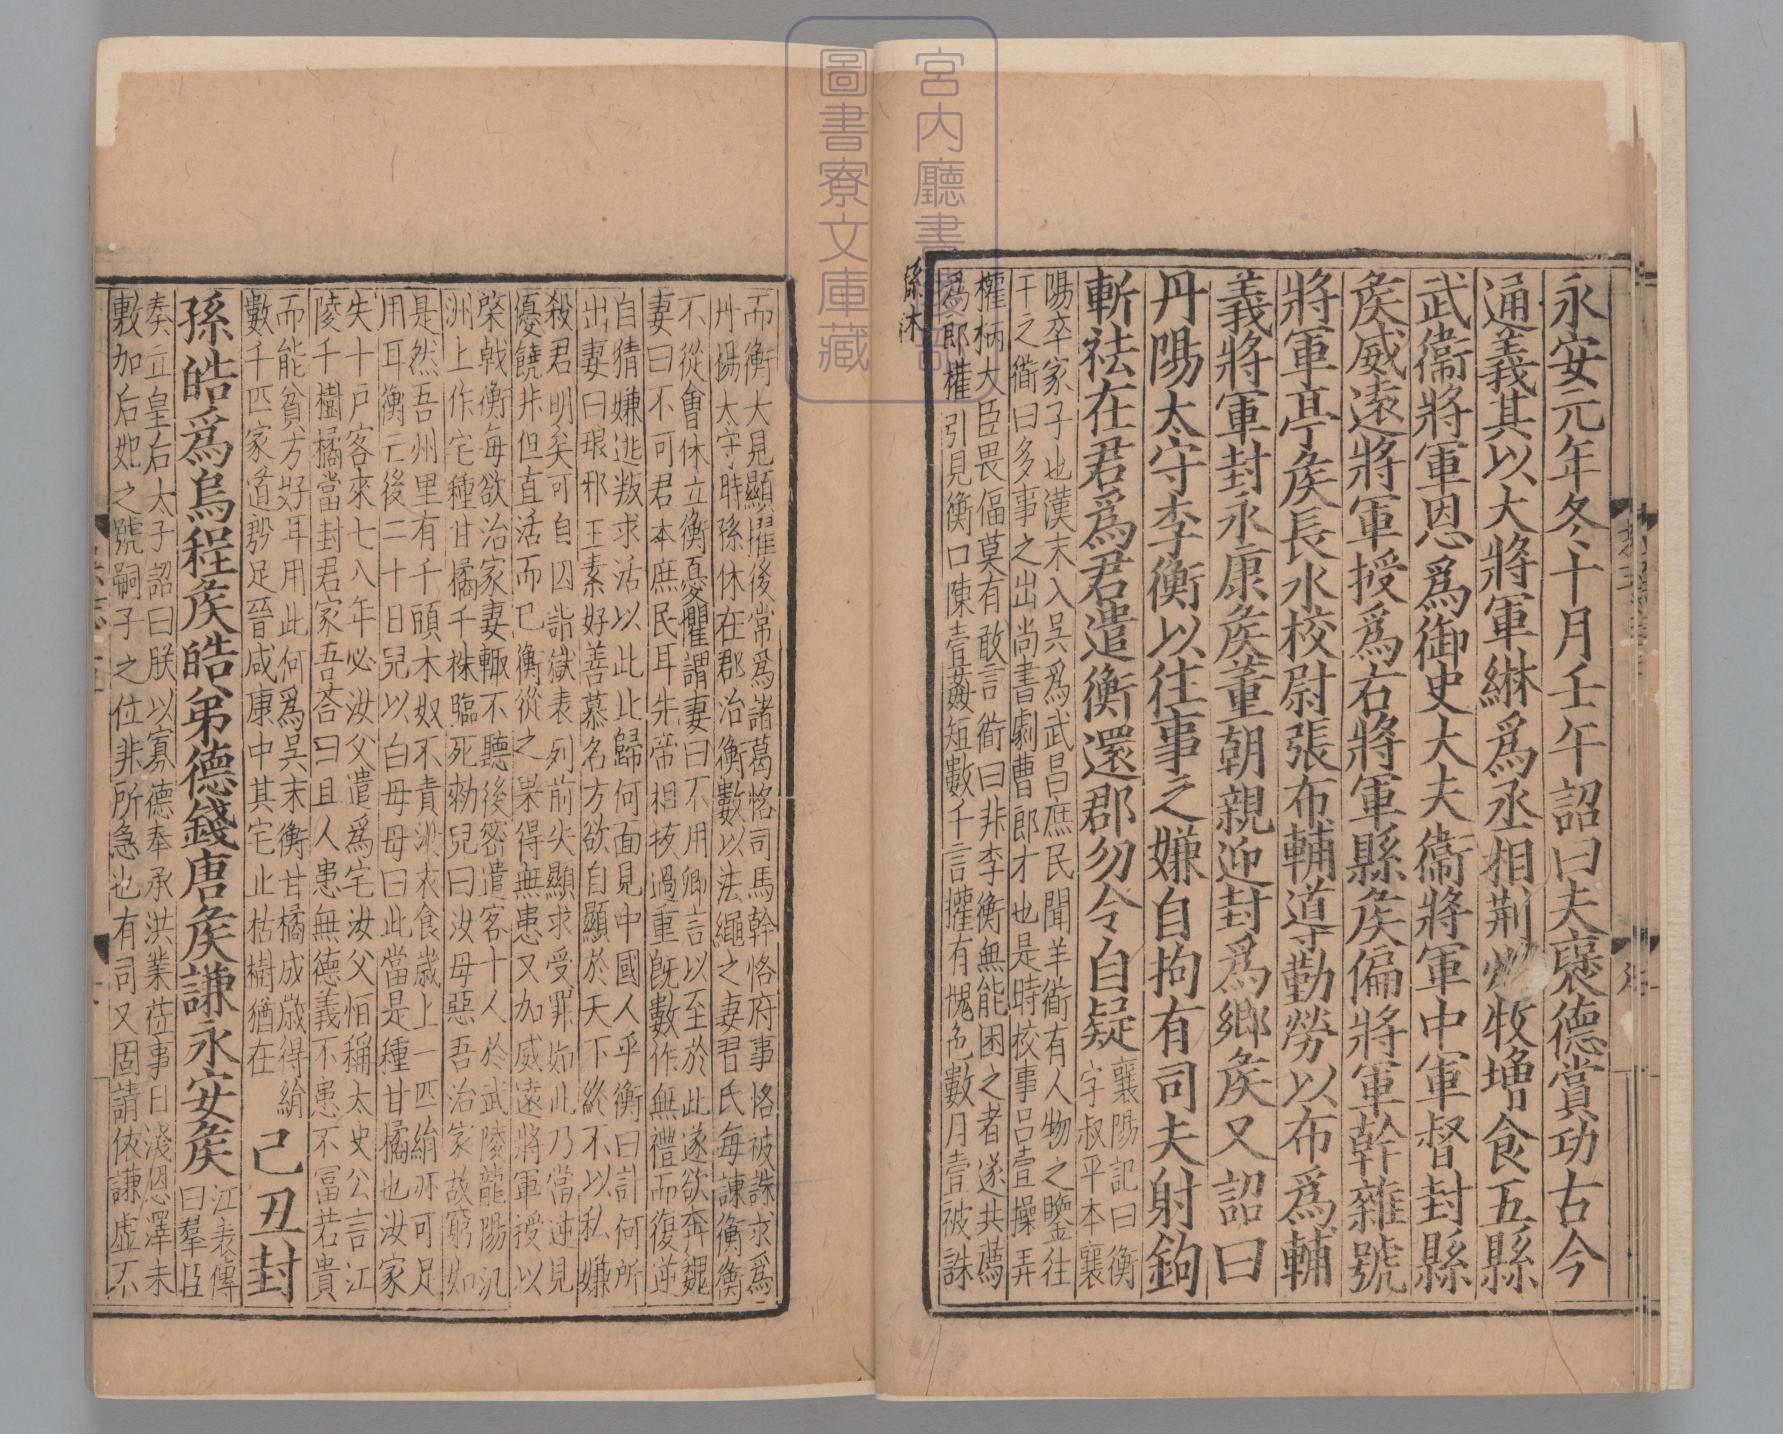 永安元年冬十月壬午詔曰夫襃德賞功古今
通義其以大將軍綝爲丞相荆州牧增食五縣
武衞將軍恩爲御史大夫衞將軍中軍督封縣
矦威遠將軍授爲右將軍縣矦偏將軍幹雜號
將軍亭矦長水校尉張布輔導勤勞以布爲輔
義將軍封永康矦董朝親迎封爲鄉矦又詔曰
丹陽太守李衡以往事之嫌自拘有司夫射鉤
斬袪在君爲君遣衡還郡勿令自疑
襄陽記曰衡
字叔平本襄
陽卒家子也漢末入吳爲武昌庶民聞羊衜有人物之鑒往
干之衜曰多事之出尚書劇曹郎才也是時校事呂壹操弄
權柄大臣畏偪莫有敢言衜曰非李衡無能困之者遂共薦
爲郎權引見衡口陳壹姦短數千言權有愧色數月壹被誅
孫休
而衡大見顯擢後常爲諸葛恪司馬幹恪府事恪被誅求爲
丹楊太守時孫休在郡治衡數以法繩之妻習氏每諫衡衡
不從會休立衡憂懼謂妻曰不用卿言以至於此遂欲奔魏
妻曰不可君本庶民耳先帝相拔過重旣數作無禮而復逆
自猜嫌逃叛求活以此北歸何面見中國人乎衡曰計何所
出妻曰琅邪王素好善慕名方欲自顯於天下終不以私嫌
殺君明矣可自囚詣獄表列前失顯求受罪如此乃當逆見
優饒非但直活而已衡從之果得無患又加威遠將軍授以
棨戟衡每欲治家妻輒不聽後密遣客十人於武陵龍陽汎
洲上作宅種甘橘千株臨死勑兒曰汝母惡吾治家故窮如
是然吾州里有千頭木奴不責汝衣食歲上一匹絹亦可足
用耳衡亡後二十日兒以白母母曰此當是種甘橘也汝家
失十戶客來七八年必汝父遣爲宅汝父恒稱太史公言江
陵千樹橘當封君家吾荅曰且人患無德義不患不富若貴
而能貧方好耳用此何爲吳末衡甘橘成歲得絹
數千匹家道殷足晉咸康中其宅止枯樹猶在
己丑封
孫皓爲烏程矦皓弟德錢唐矦謙永安矦
江表傳
曰羣臣
奏立皇后太子詔曰朕以寡德奉承洪業蒞事日淺恩澤未
敷加后妃之號嗣子之位非所急也有司又固請依謙虛不
宮内廳書陵部
圖書寮文庫藏